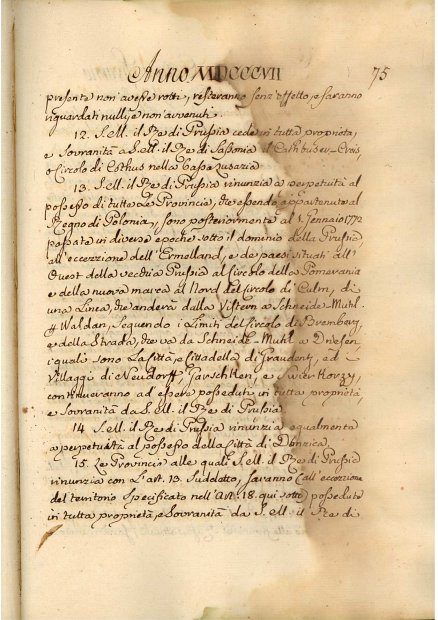 Anno MDCCCVII 75
presente non avesse rotti, resteranno senz'effetto, e saranno
riguardati nulli, e non avvenuti.
12. S. M. il Re di Prussia cede in tutta proprietà,
e Sovranità a S. M. il Re di Sassonia il
o Circolo di Cotbus nella bassa Lusazia
13. S. M. il Re di Prussia rinunzia a perpetuità al
possesso di tutte le Provincie, che essendo appartenute al
Regno di Polonia, sono posteriormente al 1. Gennaio 1772
passate in diverse epoche sotto il dominio della Prussia,
all'eccezzione dell'Ermelland, e de paesi situati all'
Ovest della vecchia Prussia al Circolo della Pomerania
e della nuova marca al Nord del Circolo di Culm, di
una Linea, che anderà dalla Vistern a Schneide-Muhl.
Waldan, Seguendo i Limiti del Circolo di Bremberg,
e della Strada, che va da Schneide-Muhl a Driesen,
i quali sono La Città, e Cittadella di Graudent, ed i
Villaggi di Neudorff, Garschken, e Swierkorzy,
continueranno ad essere posseduti in tutta proprietà
e Sovranità da S. M. il Re di Prussia
14. S. M. il Re di Prussia rinunzia egualmente
a perpetuità al possesso della Città di Danzica.
15. Le Provincie alle quali S. M. il Re di Prussia
rinunzia con L'art. 13. Suddetto, saranno (all'eccezzione
del territorio Specificato nell'Art. 18. qui sotto) possedute
in tutta proprietà e Sovranità da S. M. il Re di